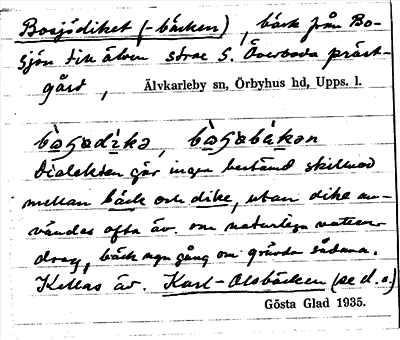 Bosjödiket (-bäcken), bäck från Bo-
sjön till älven strax S. Överboda präst-
gård, Älvkarleby sn, Örbyhus hd, Upps. l.
Dialekten gör ingen bestämd skillnad
mellan bäck och dike, utan dike an-
vändes ofta äv. om naturliga vatten-
drag, bäck ngn gång om grävda sådana.
Kallas äv. Karl-Olsbäcken (se d. o.)
Gösta Glad 1935.